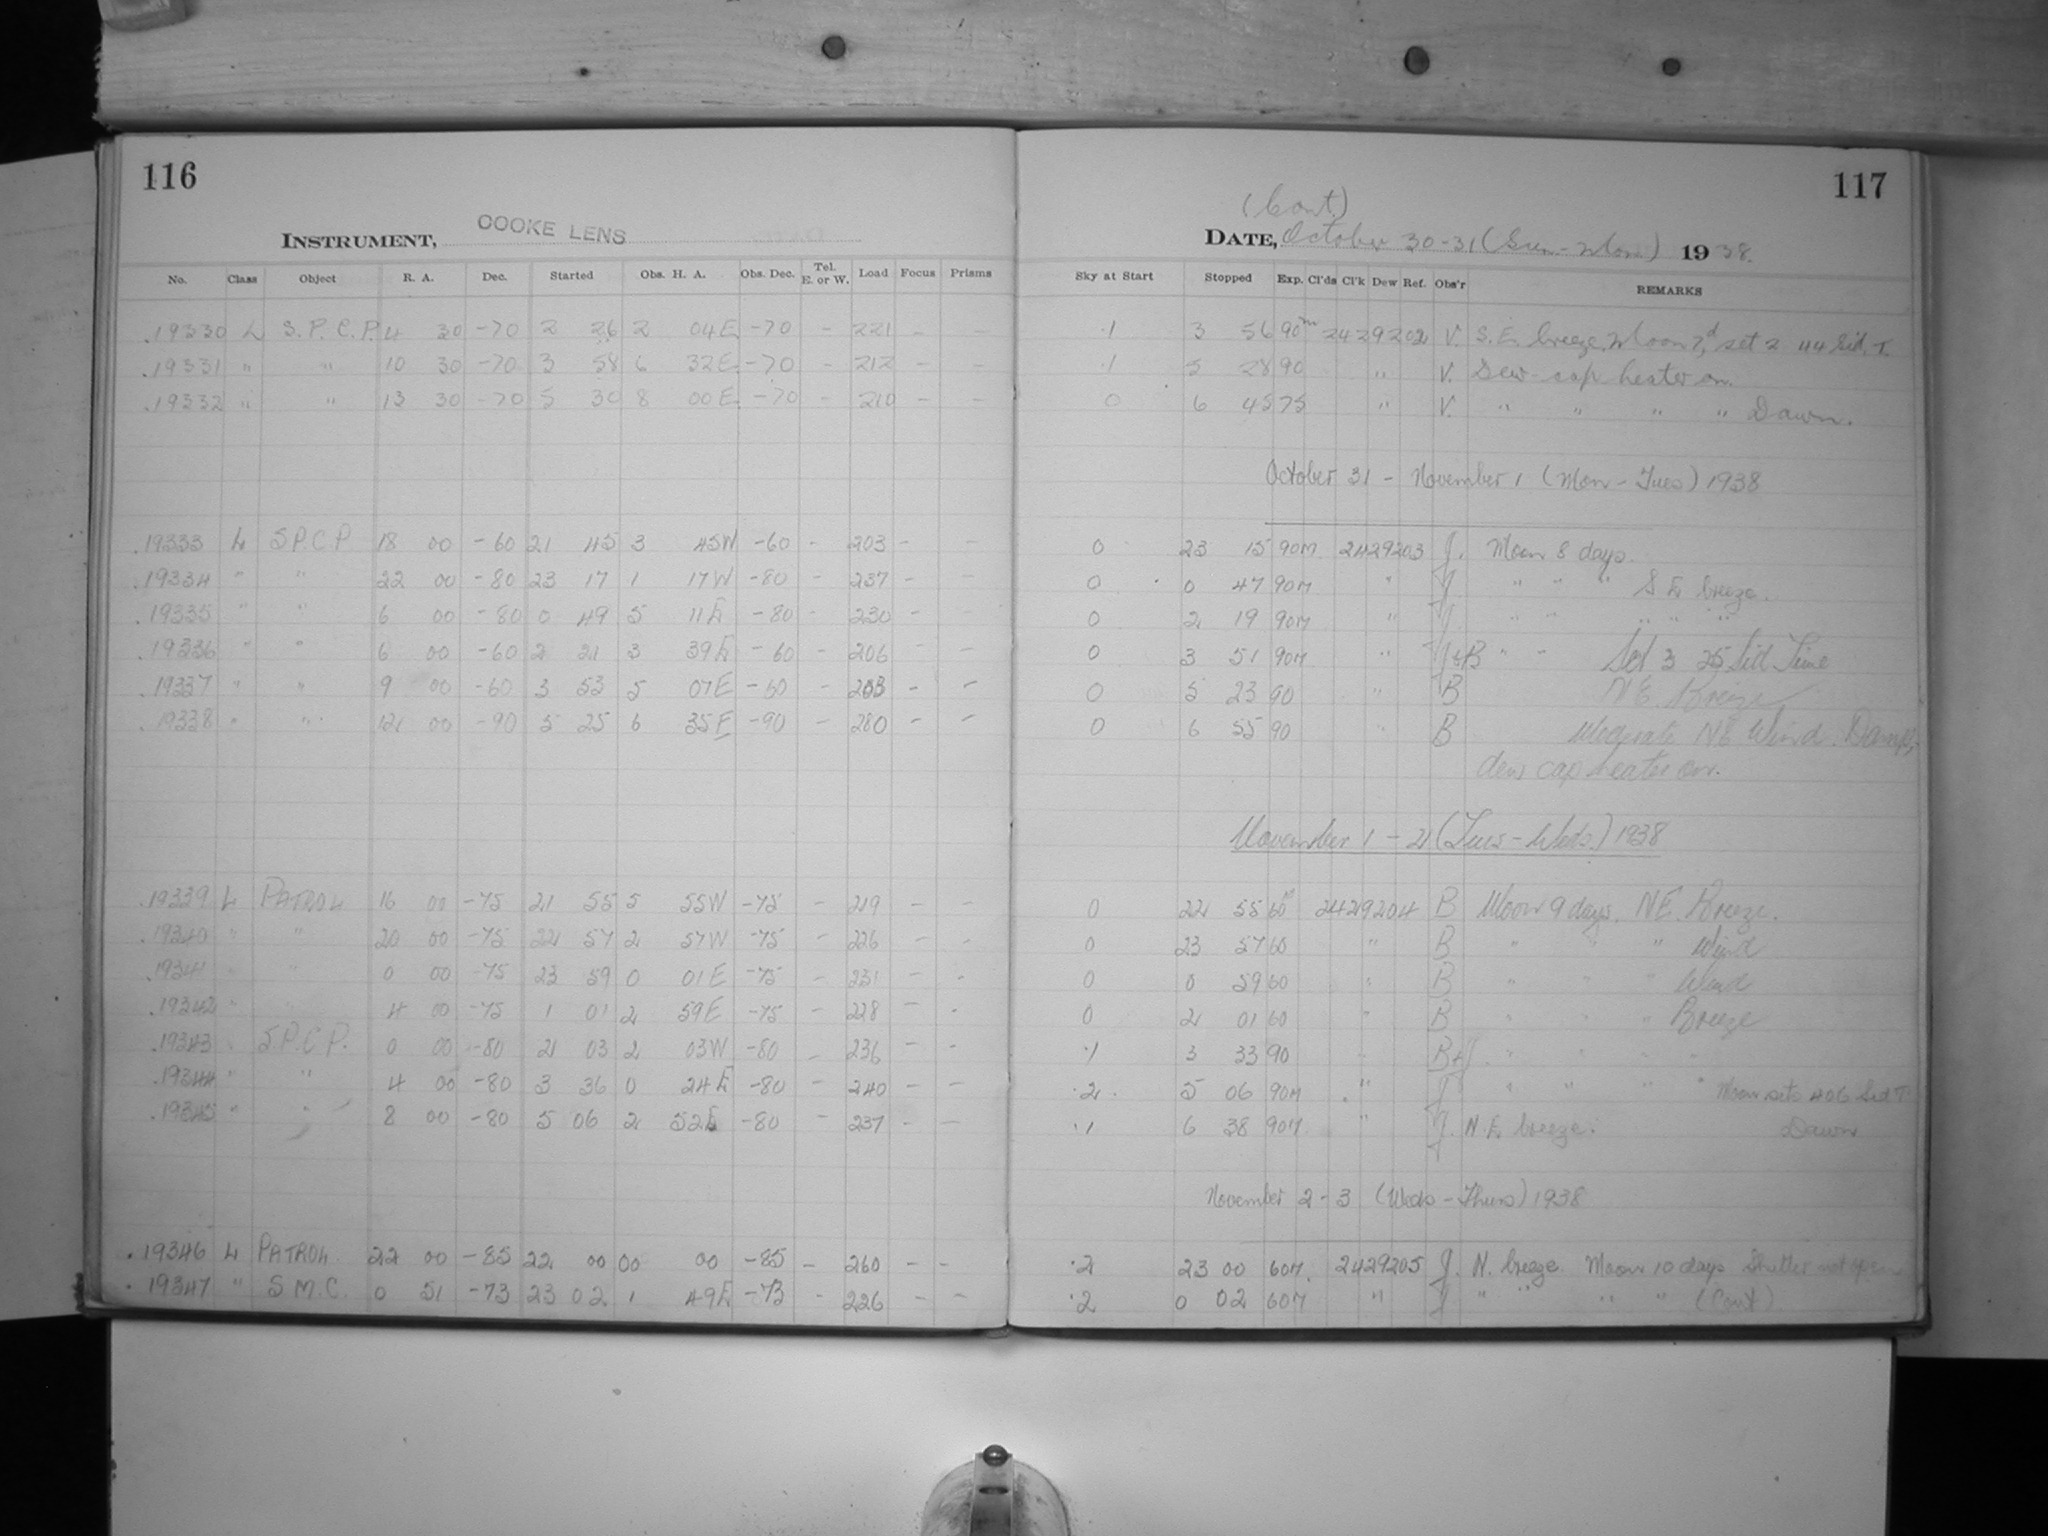 116
INSTRUMENT, COOKE LENS
No. Class Object R. A. Dec. Started Obs. H. A. Obs. Dec. Tel. E. or W. Load Focus Prisms
.19330 L S.P.C.P. 4 30 -70 2 26 2 04E -70 - 221 - -
.19331 " " 10 30 -70 3 58 6 32E -70 - 212 - -
.19332 " " 13 30 -70 5 30 8 00E -70 - 210 - -
.19333 L S.P.C.P 18 00 -60 21 45 3 45W -60 - 203 - -
.19334 " " 22 00 -80 23 17 1 17W -80 - 237 - -
.19335 " " 6 00 -80 0 49 5 11E -80 - 230 - -
.19336 " " 6 00 -60 2 21 3 39E -60 - 206 - -
.19337 " " 9 00 -60 3 53 5 07E -60 - 203 - -
.19338 " " 12 00 -90 5 25 6 35E -90 - 280 - -
.19339 L PATROL 16 00 -75 21 55 5 55W -75 - 219 - -
.19340 " " 20 00 -75 22 57 2 57W -75 - 226 - -
.19341 " " 0 00 -75 23 59 0 01E -75 - 231 - -
.19342 " " 4 00 -75 1 01 2 59E -75 - 228 - -
.19343 " S.P.C.P. 0 00 -80 2 03 2 03W -80 - 236 - -
.19344 " " 4 00 -80 3 36 0 24E -80 - 240 - -
.19345 " " 8 00 -80 5 06 2 52E -80 - 237 - -
.19346 L PATROL 22 00 -85 22 00 00 00 -85 - 260 - -
.19347 " S.M.C. 0 51 -73 23 02 1 49E -73 - 226 - -
117
(Cont.)
DATE, October 30-31 (Sun-Mon) 1938.
Sky at Start Stopped Exp. Cl'ds Cl'k Dew Ref. Obs'r REMARKS
.1 3 56 90m 2429202 V. S.E. breeze. Moon 7d, set 2 44 Sid. T.
.1 5 28 90 " V. Dew-cap heater on.
0 6 45 75 " V. " " " " Dawn.
October 31 - November 1 (Mon - Tues) 1938
0 23 15 90m 2429203 J. Moon 8 days.
0 0 47 90m " J " " " S E breeze.
0 2 19 90m " J " " " " "
0 3 51 90m " J+B " " Set 3 25 Sid Time
0 5 23 90 " B N.E. Breeze
0 6 55 90 " B Moderate NE Wind. Damp,
dew cap heater on.
November 1 - 2 (Tues - Weds.) 1938
0 22 55 60m 2429204 B Moon 9 days. NE. Breeze.
0 23 57 60 " B " " " Wind
0 0 59 60 " B " " Wind
0 2 01 60 " B " " " Breeze
.1 3 33 90 " B+J " " " "
.2 5 06 90m " J " " " " Moon sets 4 06 Sid T.
.1 6 38 90m " J. N.E. breeze. Dawn
November 2 - 3 (Weds - Thurs) 1938
.2 23 00 60m. 2429205 J. N. breeze. Moon 10 days Shutter not open
.2 0 02 60m " J " " " " (Cont)